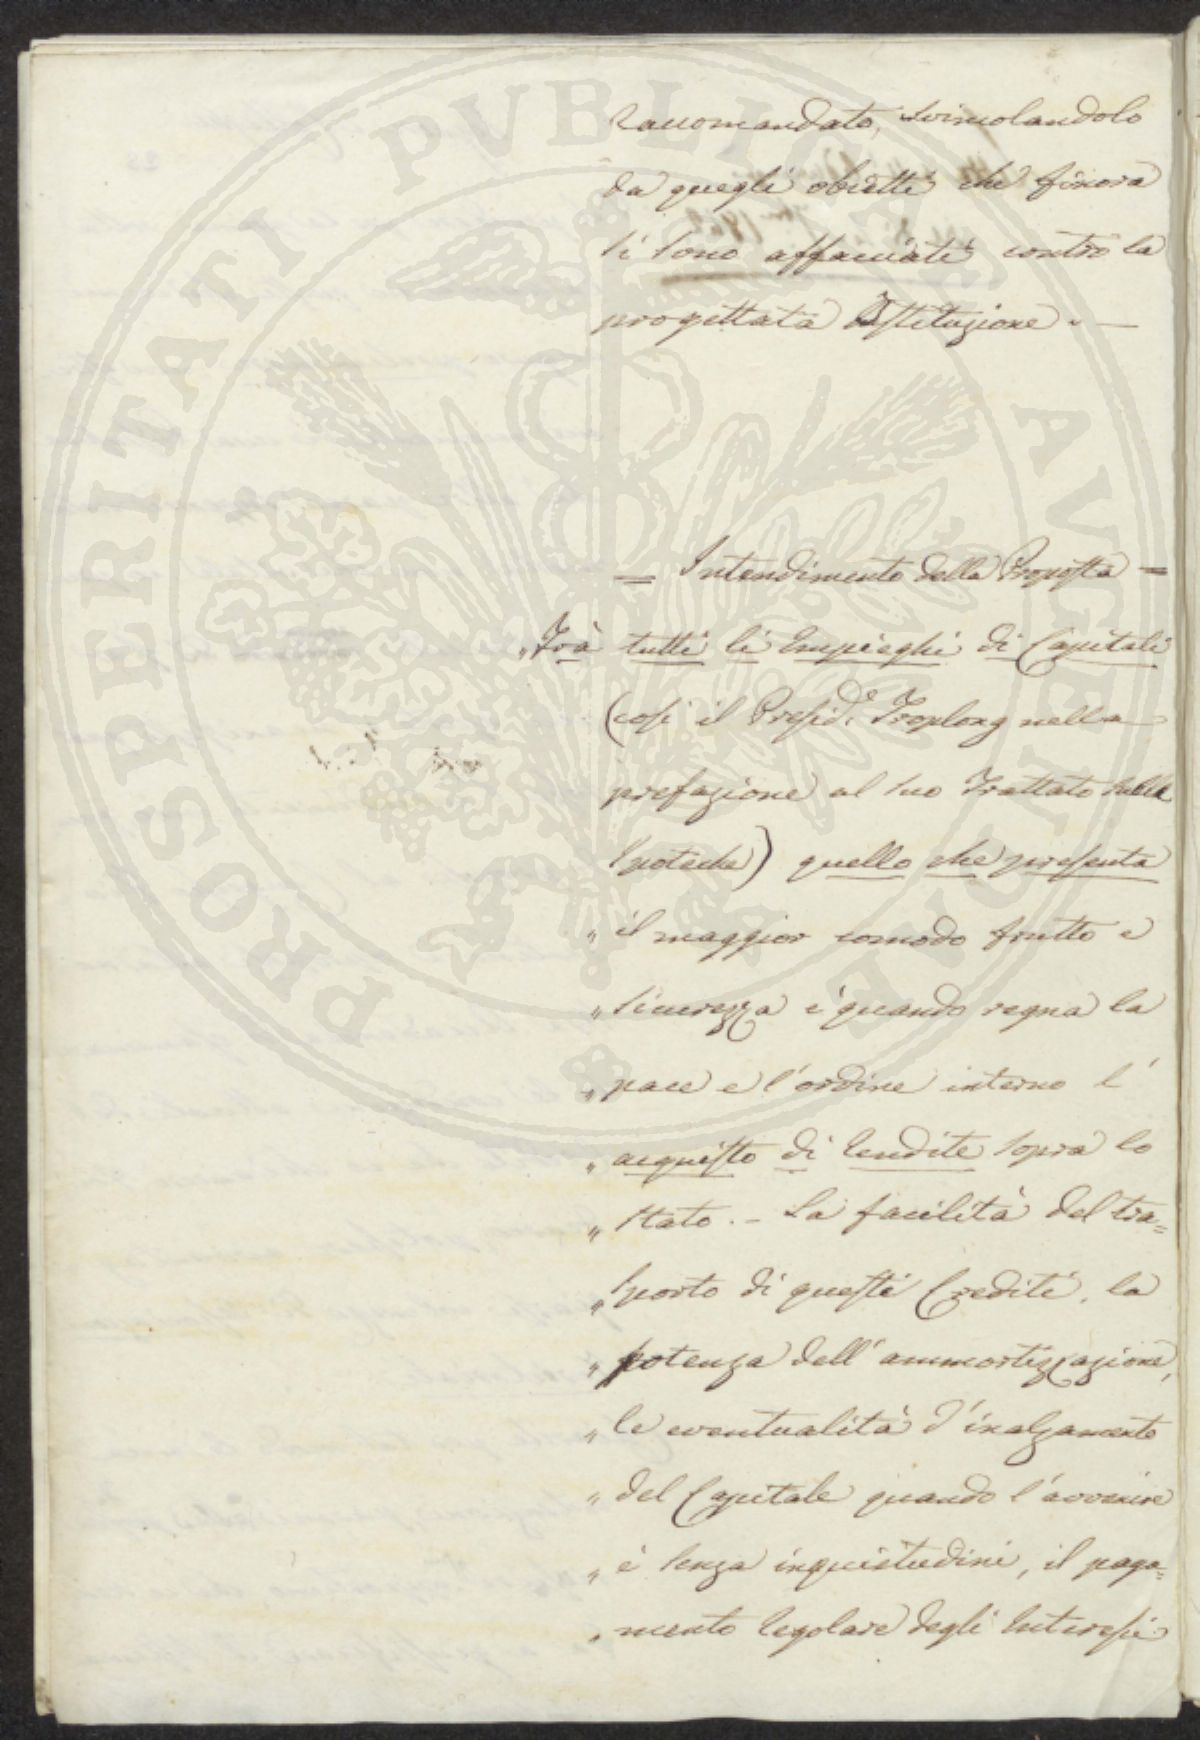 Raccomandato, svincolandolo
da quegli obietti che finora
si sono affacciati contro la
progettata Istituzione. —
= Intendimento della Proposta =
„ Frà tutti li Impieghi di Capitali
(così il Presid.e Troplong nella
prefazione al suo Trattato sulle
Ipoteche) quello che presenta
„ il maggior comodo frutto e
„ sicurezza è quando regna la
„ pace e l'ordine interno l'
„ acquisto di Rendite sopra lo
„ Stato. - La facilità del tra=
„ sporto di questi Crediti, la
„ potenza dell'ammortizzazione,
„ le eventualità d'inalzamento
„ del Capitale quando l'avvenire
„ è senza inquietudini, il paga=
„ mento regolare degli Interessi
PROSPERITATI PVBLICAE AVGENDAE